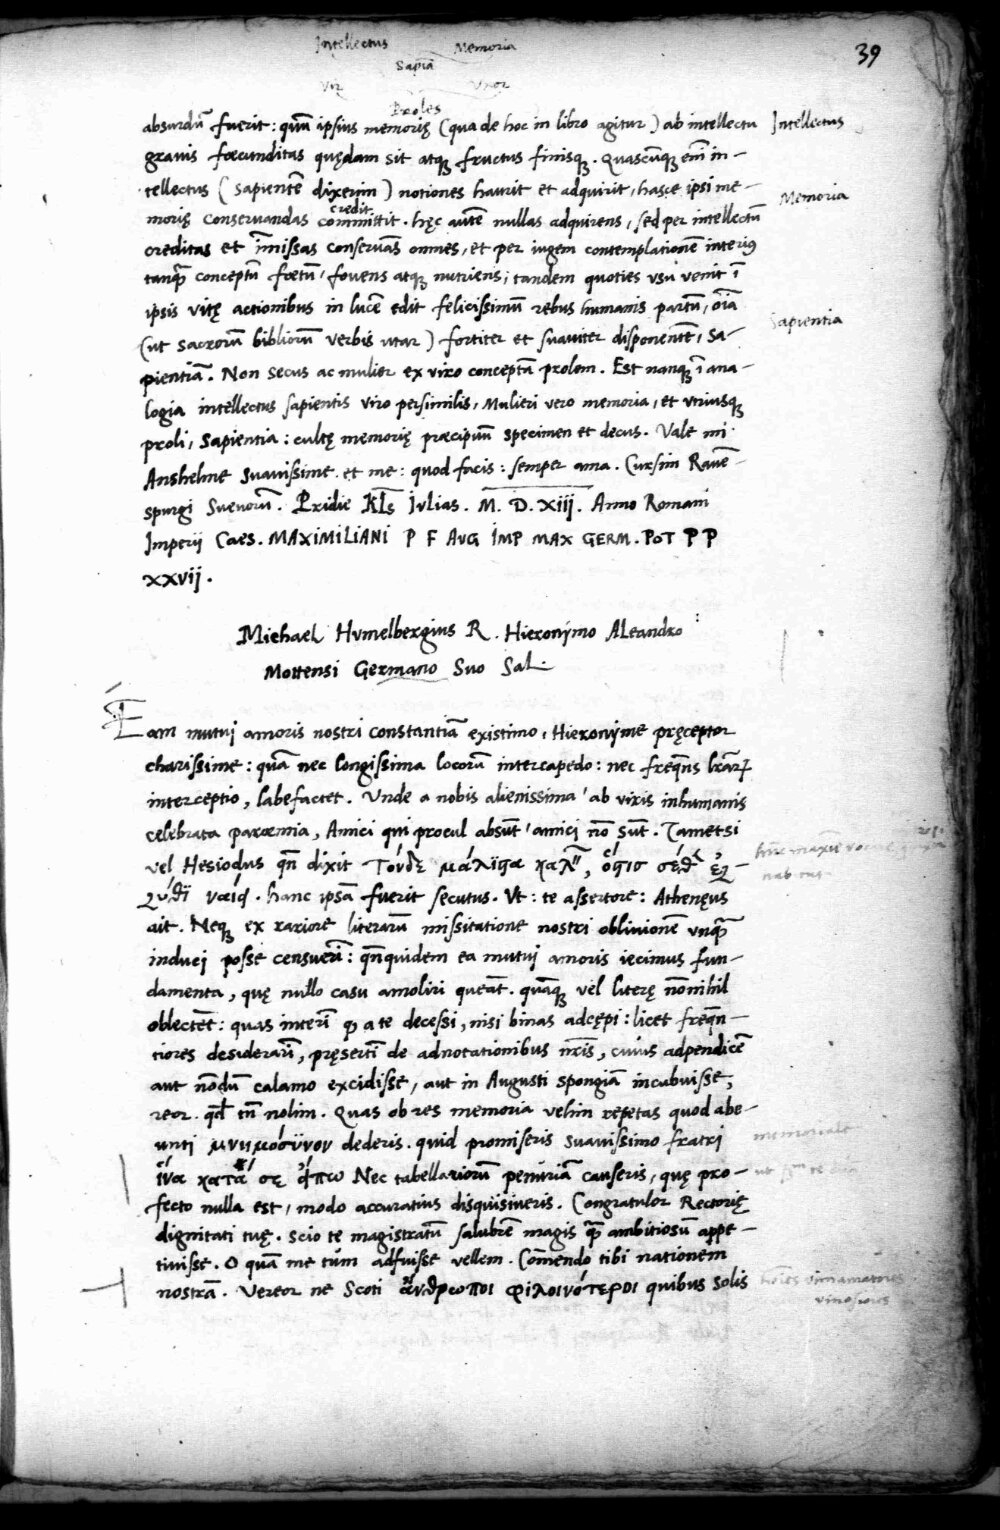 39
Intellectus Memoria
Sapiā
Vir Vxor
Proles
absurdū fuerit: quū ipsius memorię (qua de hoc in libro agitur) ab intellectu Intellectus
grauis foecunditas quędam sit atqꝫ fructus finisqꝫ. Quascūqꝫ em̄ in-
tellectus (sapientē dixerim) notiones haurit et adquirit, hasce ipsi me- Memoria
morię conseruandas credit committit. hęc autē nullas adquirens, sed per intellectū
creditas et īmissas conseruās omnes, et per iugem contemplationē interiꝰ
tanqꝫ̄ conceptū foetū, fouens atqꝫ nutriens, tandem quoties vsu venit ī
ipsis vitę actionibus in lucē edit felicissimū rebus humanis partū, oīa Sapientia
(ut sacrorū bibliorū verbis utar) fortiter et suauiter disponentē, Sa-
pientiā. Non secus ac mulier ex viro conceptā prolem. Est nanqꝫ ī ana-
logia intellectus sapientis viro persimilis, Mulieri vero memoria, et vtriusqꝫ
proli, Sapientia: cultę memorię praecipuū specimen et decus. Vale mi
Anshelme Suauissime et me: quod facis: semper ama. Cursim Rauē-
spurgi Sueuorū. Pridie Kl̄s Iulias. M. D. XIII. Anno Romani
Imperij Caes. MAXIMILIANI P F AUG IMP MAX GERM. POT P P
XXVij.
Michael Hvmelbergius R. Hieronymo Aleandro
Mottensi Germano Suo Sal.
Eam mutuj amoris nostri constantiā existimo, Hieronyme pręceptor
charissime: quā nec longissima locorū intercapedo: nec freq̄ns lr̄arꝝ
interceptio, labefactet. Unde a nobis alienissima, ab viris inhumanis
celebrata paroemia, Amici qui procul absūt, amici nō sūt. Tametsi
vel Hesiodus qn̄ dixit
hanc ipsā fuerit secutus. Vt: te assertore: Athenęus
ait. Neqꝫ ex rariore literarū missitatione nostri obliuionē vnqꝫ̄
induci posse censuerī: qn̄quidem ea mutuj amoris iecimus fun-
damenta, quę nullo casu amoliri queāt. quāqꝫ vel literę nōnihil
oblectēt: quas interī a te decessi, nisi binas adcępi: licet freq̄n-
tiores desiderarī, pręsertī de adnotationibus nr̄is, cuius adpendicē
aut nōdū calamo excidisse, aut in Augusti spongiā incubuisse,
reor. qd̄ tn̄ nolim. Quas ob res memoria velim repetas quod abe-
unti μνημόσυνον dederis. quid promiseris suauissimo fratri memoriale
ἵνα κατὰ Nec tabellariorū penuriā causeris, quę pro-
fecto nulla est, modo accuratius disquisiueris. Congratulor Rectorię
dignitati tuę. scio te magistratū salubrē magis qꝫ̄ ambitiosū appe-
tiuisse. O quā me tum adfuisse vellem. Cōmendo tibi nationem
nostrā. Vereor ne Scoti φιλοινότεροι quibus solis
vinosiores